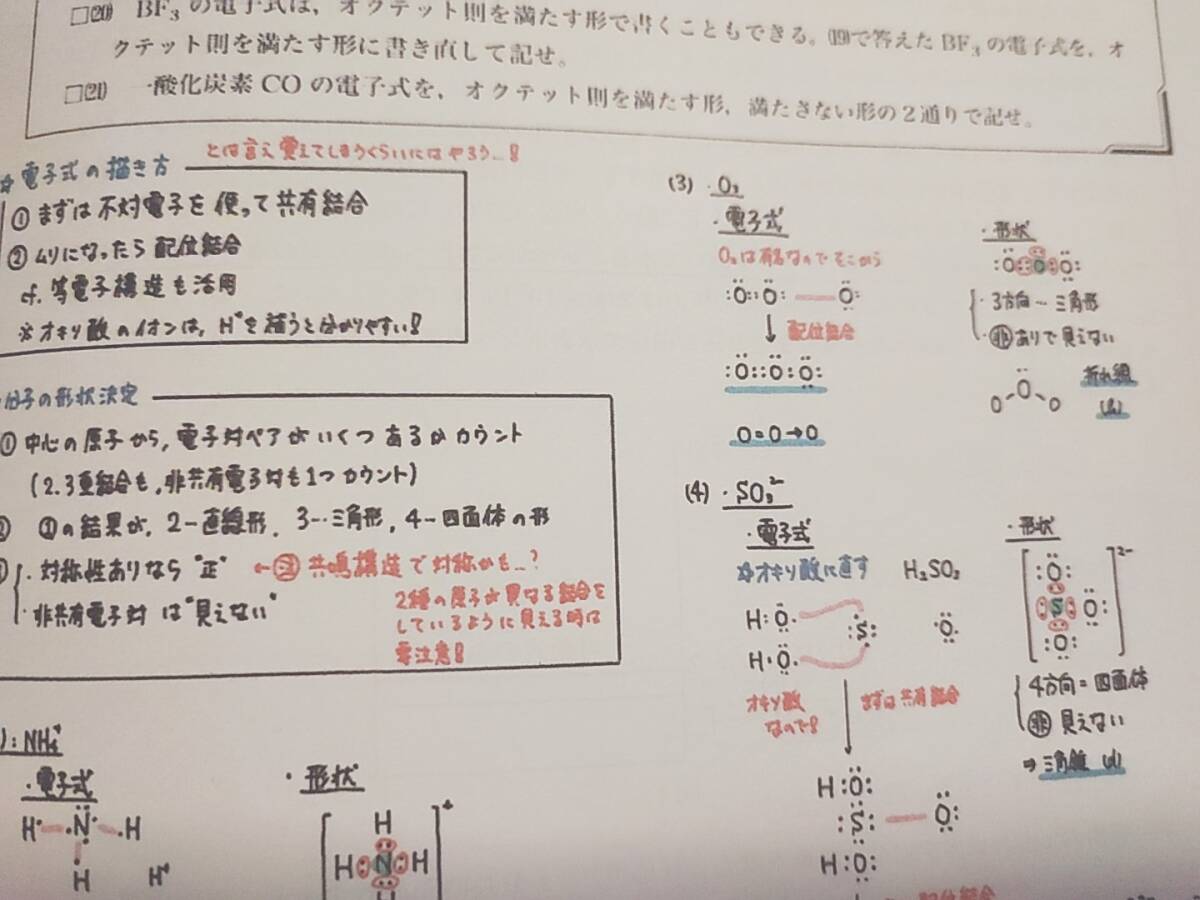 □⒇ BF₃の電子式は、オクテット則を満たす形で書くこともできる。⒆で答えたBF₃の電子式を、オ
クテット則を満たす形に書き直して記せ。
□(21) 一酸化炭素COの電子式を、オクテット則を満たす形、満たさない形の2通りで記せ。
とは言え覚えてしまうくらいにはやろう…!
☆電子式の描き方
① まずは不対電子を使って共有結合
② ムリになったら配位結合
cf. 等電子構造も活用
※オキソ酸のイオンは、H⁺を補うと分かりやすい!
分子の形状決定
① 中心の原子から、電子対ペアがいくつあるかカウント
(2.3重結合も、非共有電子対も1つカウント)
② ①の結果が、2-直線形、3…三角形、4-四面体の形
・対称性ありなら "正" ←注 共鳴構造で対称かも…?
・非共有電子対は"見えない"
2種の原子が異なる結合を
しているように見える時は
要注意!
(3) ・O₃
・電子式
O₂は有名なのでそこから
:O::O: — O:
↓ 配位結合
:O::O:O:
O=O→O
・形状
:O::O:O:
3方向…三角形
非ありで見えない
O O O
折れ線
(4) ・SO₃²⁻
・電子式
☆オキソ酸に直す H₂SO₃
H:O. :S: O:
H:O.
オキソ酸
なので!
まずは共有結合
H:O:
:S: — O:
H:O:
配位結合
・形状
[:O: :S:O: :O:]²⁻
4方向=四面体
非 見えない
⇒三角錐 (d)
): NH₄⁺
・電子式
H N H
H H⁺
・形状
H
H N H
H
+